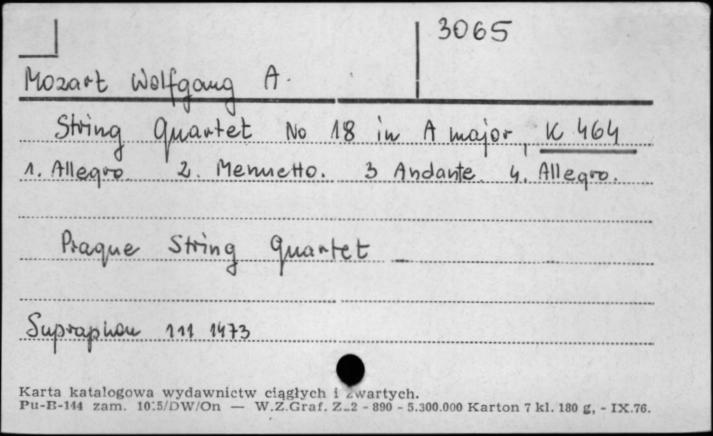 3065
Mozart Wolfgang A.
String Quartet No 18 in A major, K 464
1. Allegro 2. Menuetto. 3 Andante 4. Allegro.
Prague String Quartet
Supraphon 111 1473
Karta katalogowa wydawnictw ciągłych i zwartych.
Pu-B-144 zam. DW/On — W.Z.Graf. - 890 - 5.300.000 Karton 7 kl. 180 g, - IX.76.